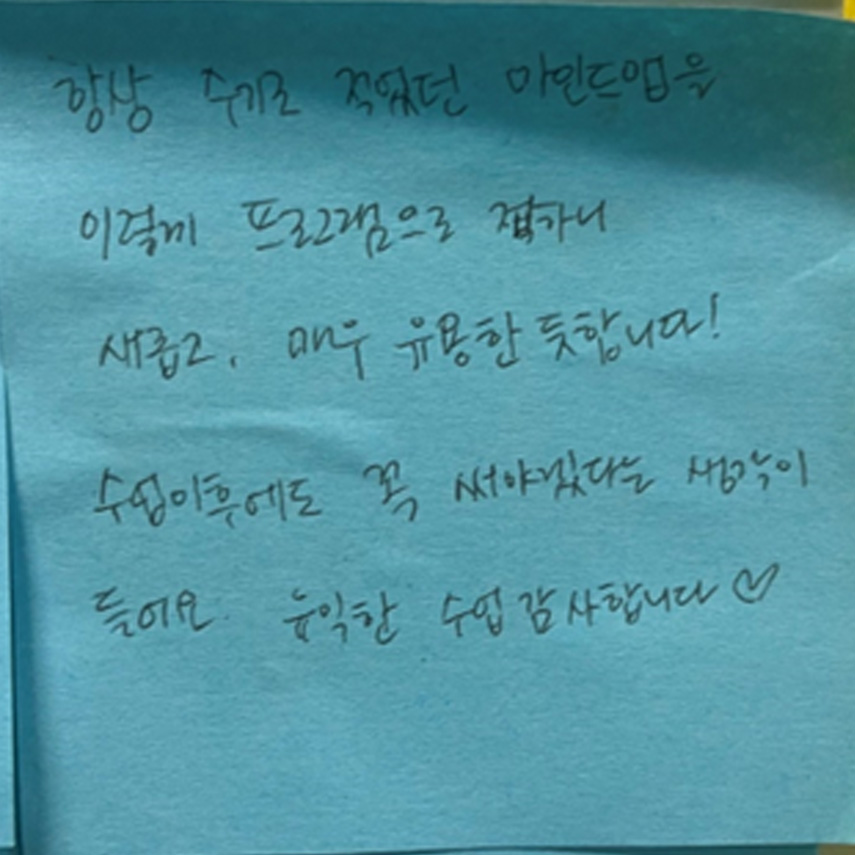 항상 수기로 적었던 마인드맵을
이렇게 프로그램으로 접하니
새롭고, 매우 유용한 듯합니다!
수업이후에도 꼭 써야겠다는 생각이
들어요. 유익한 수업 감사합니다♡